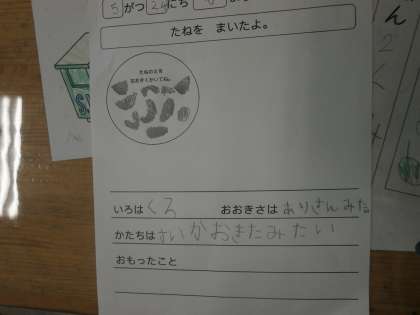 5がつ24にち
たねを まいたよ。
たねのえを
おおきくかいてね。
いろは くろ おおきさは ありさんみたい
かたちは すいかおきたみたい
おもったこと